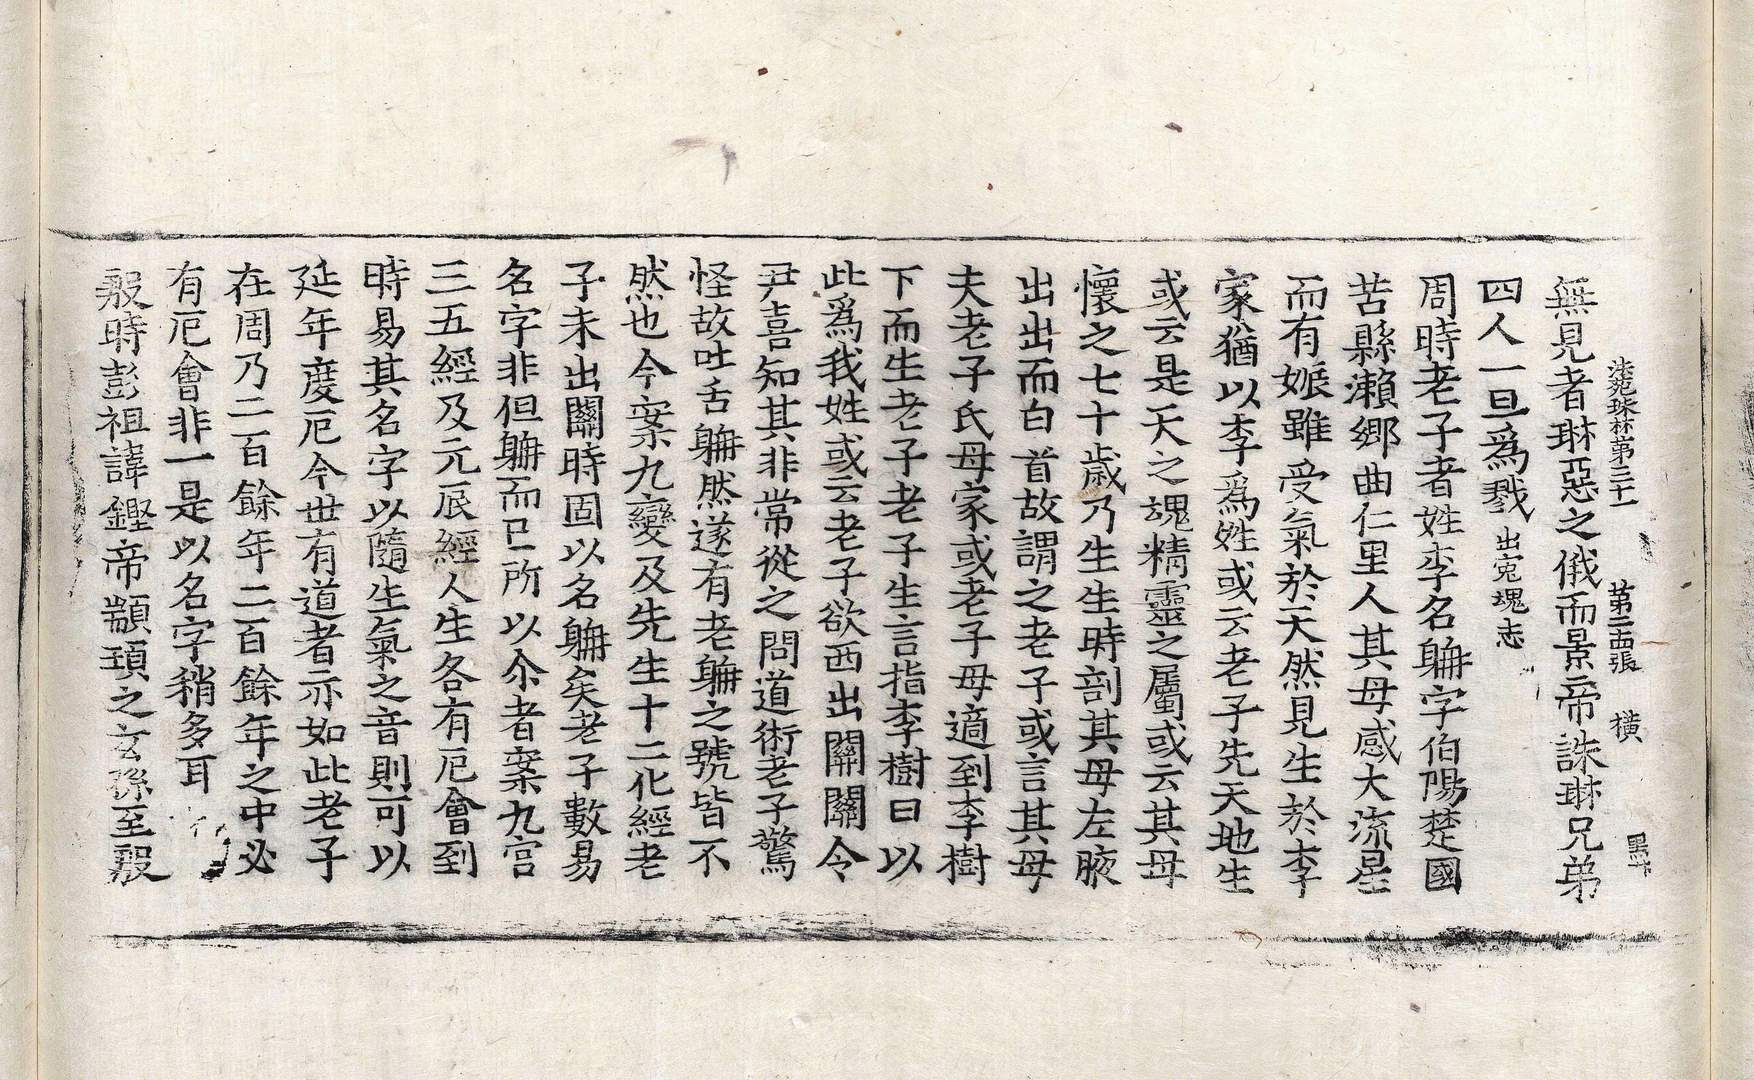 法苑珠林第三十一 第二西張 橫
無見者琳惡之俄而景帝誅琳兄弟
四人一旦爲戮出宛塊志
周時老子者姓李名䏈字伯陽楚國
苦縣瀨鄉曲仁里人其母感大流星
而有娠雖受氣於天然見生於李
家猶以李爲姓或云老子先天地生
或云是天之魂精靈之屬或云其母
懷之七十歲乃生生時剖其母左腋
出出而白首故謂之老子或言其母
夫老子氏母家或老子母適到李樹
下而生老子老子生言指李樹曰以
此爲我姓或云老子欲西出關關令
尹喜知其非常從之問道術老子驚
怪故吐舌䏈然遂有老䏈之號皆不
然也今案九變及先生十二化經老
子未出關時固以名䏈矣老子數易
名字非但䏈而已所以尒者案九宮
三五經及元辰經人生各有厄會到
時易其名字以隨生氣之音則可以
延年度厄今世有道者亦如此老子
在周乃二百餘年二百餘年之中必
有厄會非一是以名字稍多耳
殷時彭祖諱鏗帝顓頊之玄孫至殷